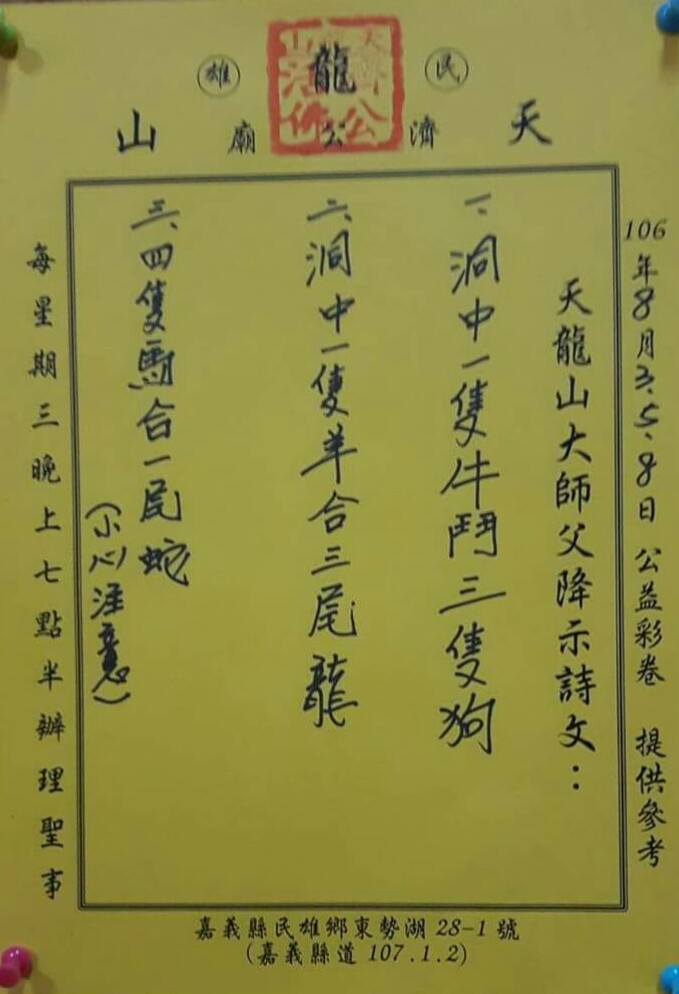 民雄
天龍山
濟公廟
天龍山濟公活佛
106年8月3.5.8日 公益彩卷 提供參考
天龍山大師父降示詩文：
一、洞中一隻牛鬥三隻狗
二、洞中一隻羊合三尾龍
三、四隻馬合一尾蛇
（小心注意）
每星期三晚上七點半辦理聖事
嘉義縣民雄鄉東勢湖 28-1 號
(嘉義縣道 107.1.2)